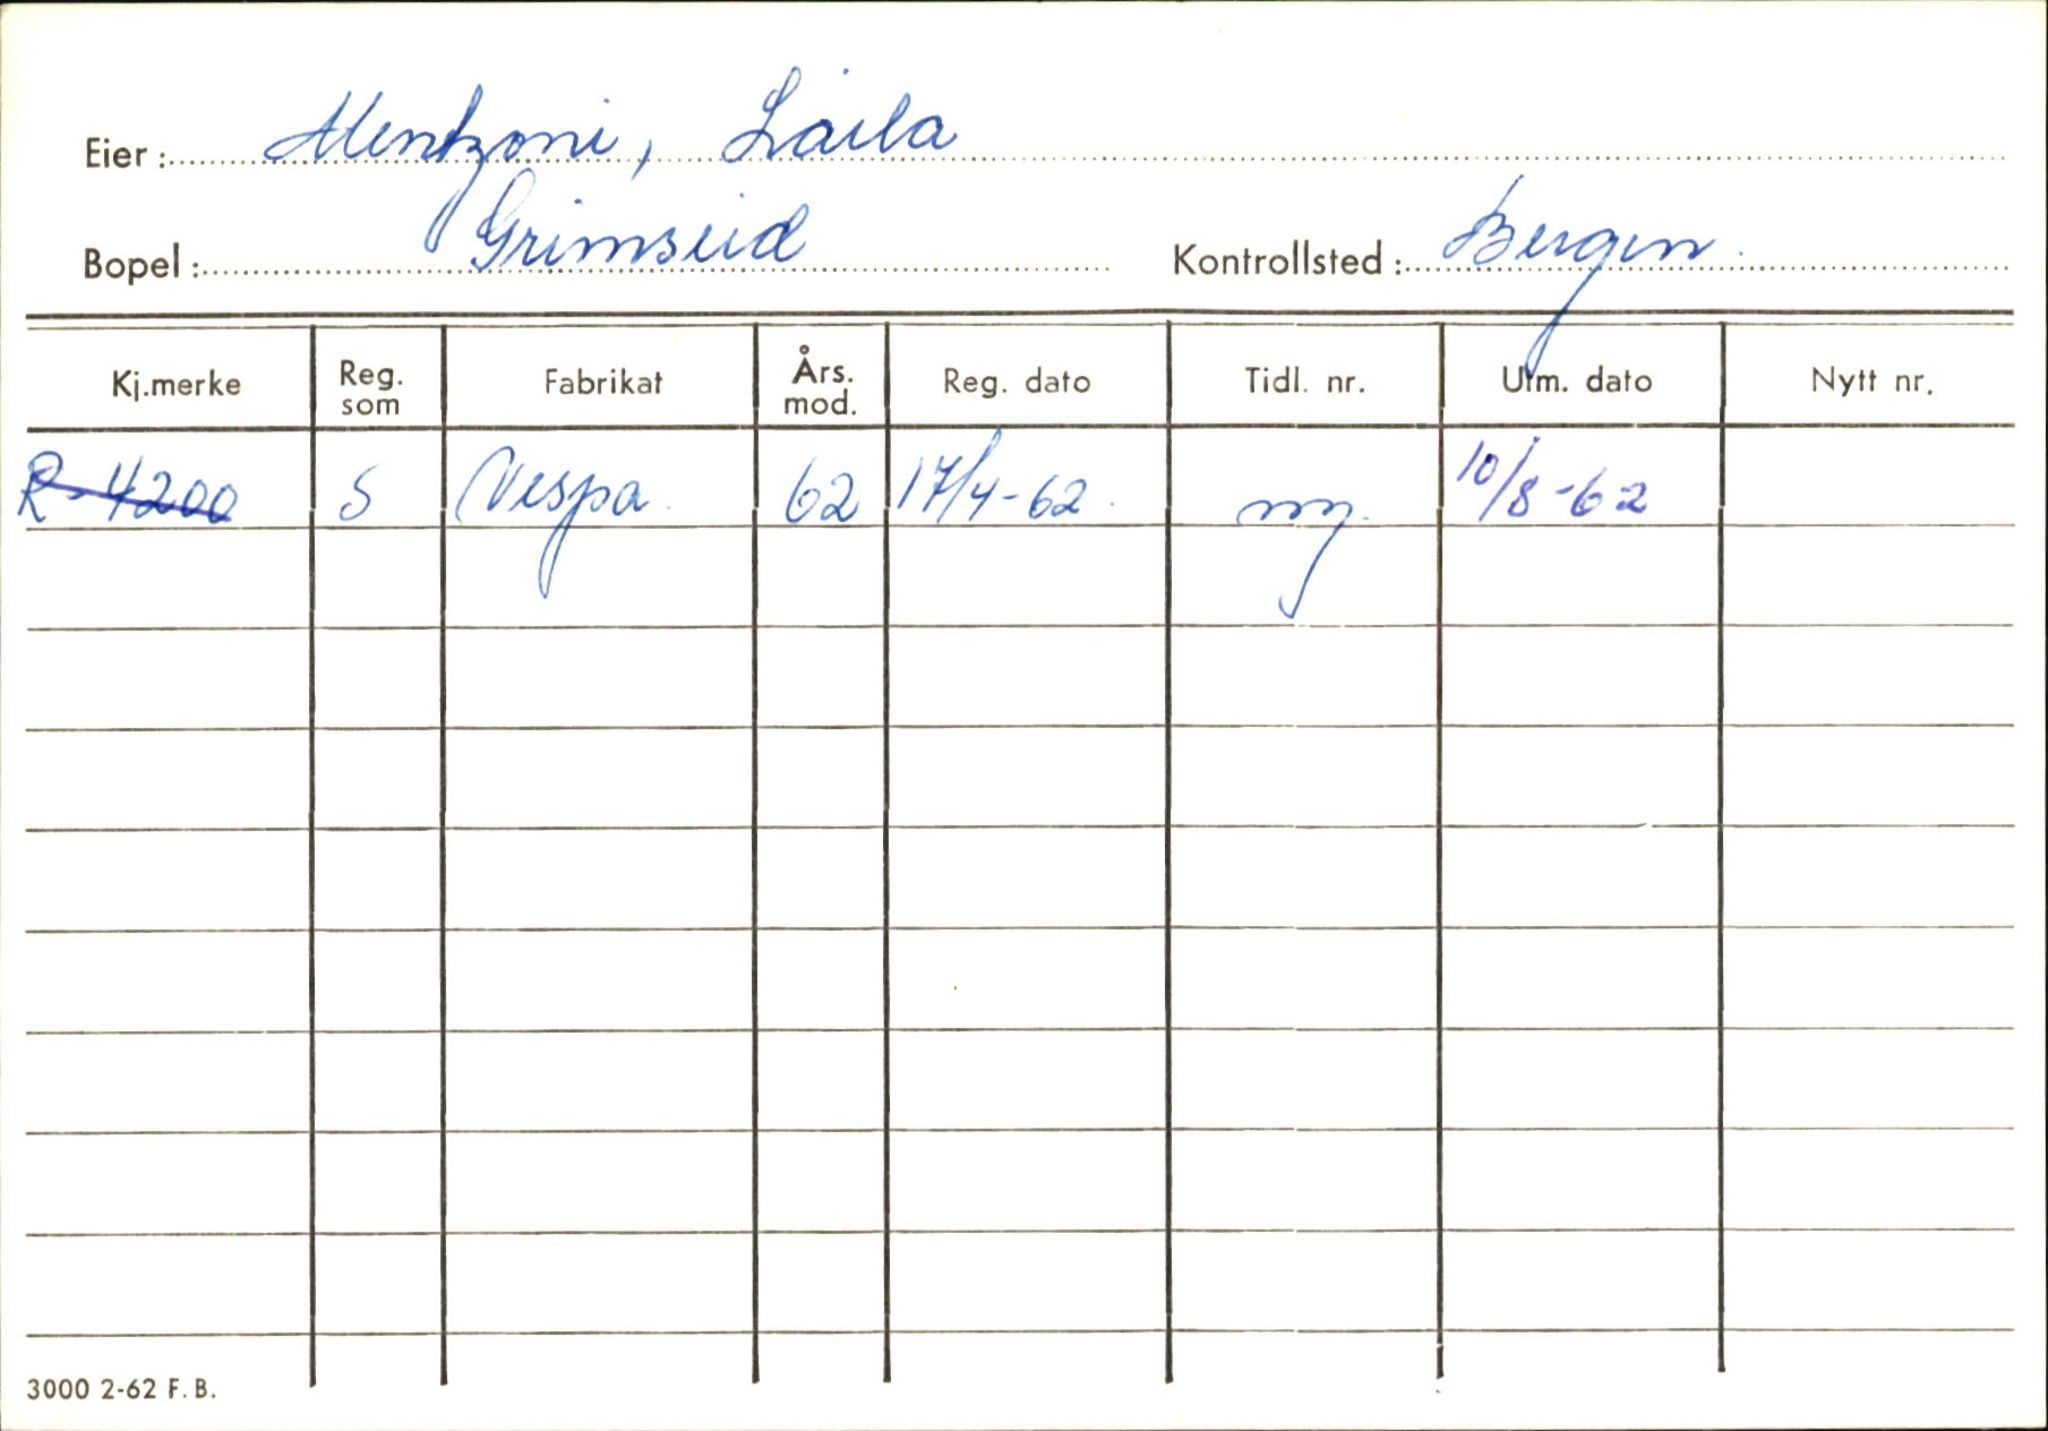 Eier: Mentzoni, Laila
Bopel: Grimseid Kontrollsted: Bergen.
Kj.merke Reg. som Fabrikat Års. mod. Reg. dato Tidl. nr. Utm. dato Nytt nr.
R-4200 S Vespa. 62 17/4-62. ny. 10/8-62
3000 2-62 F. B.